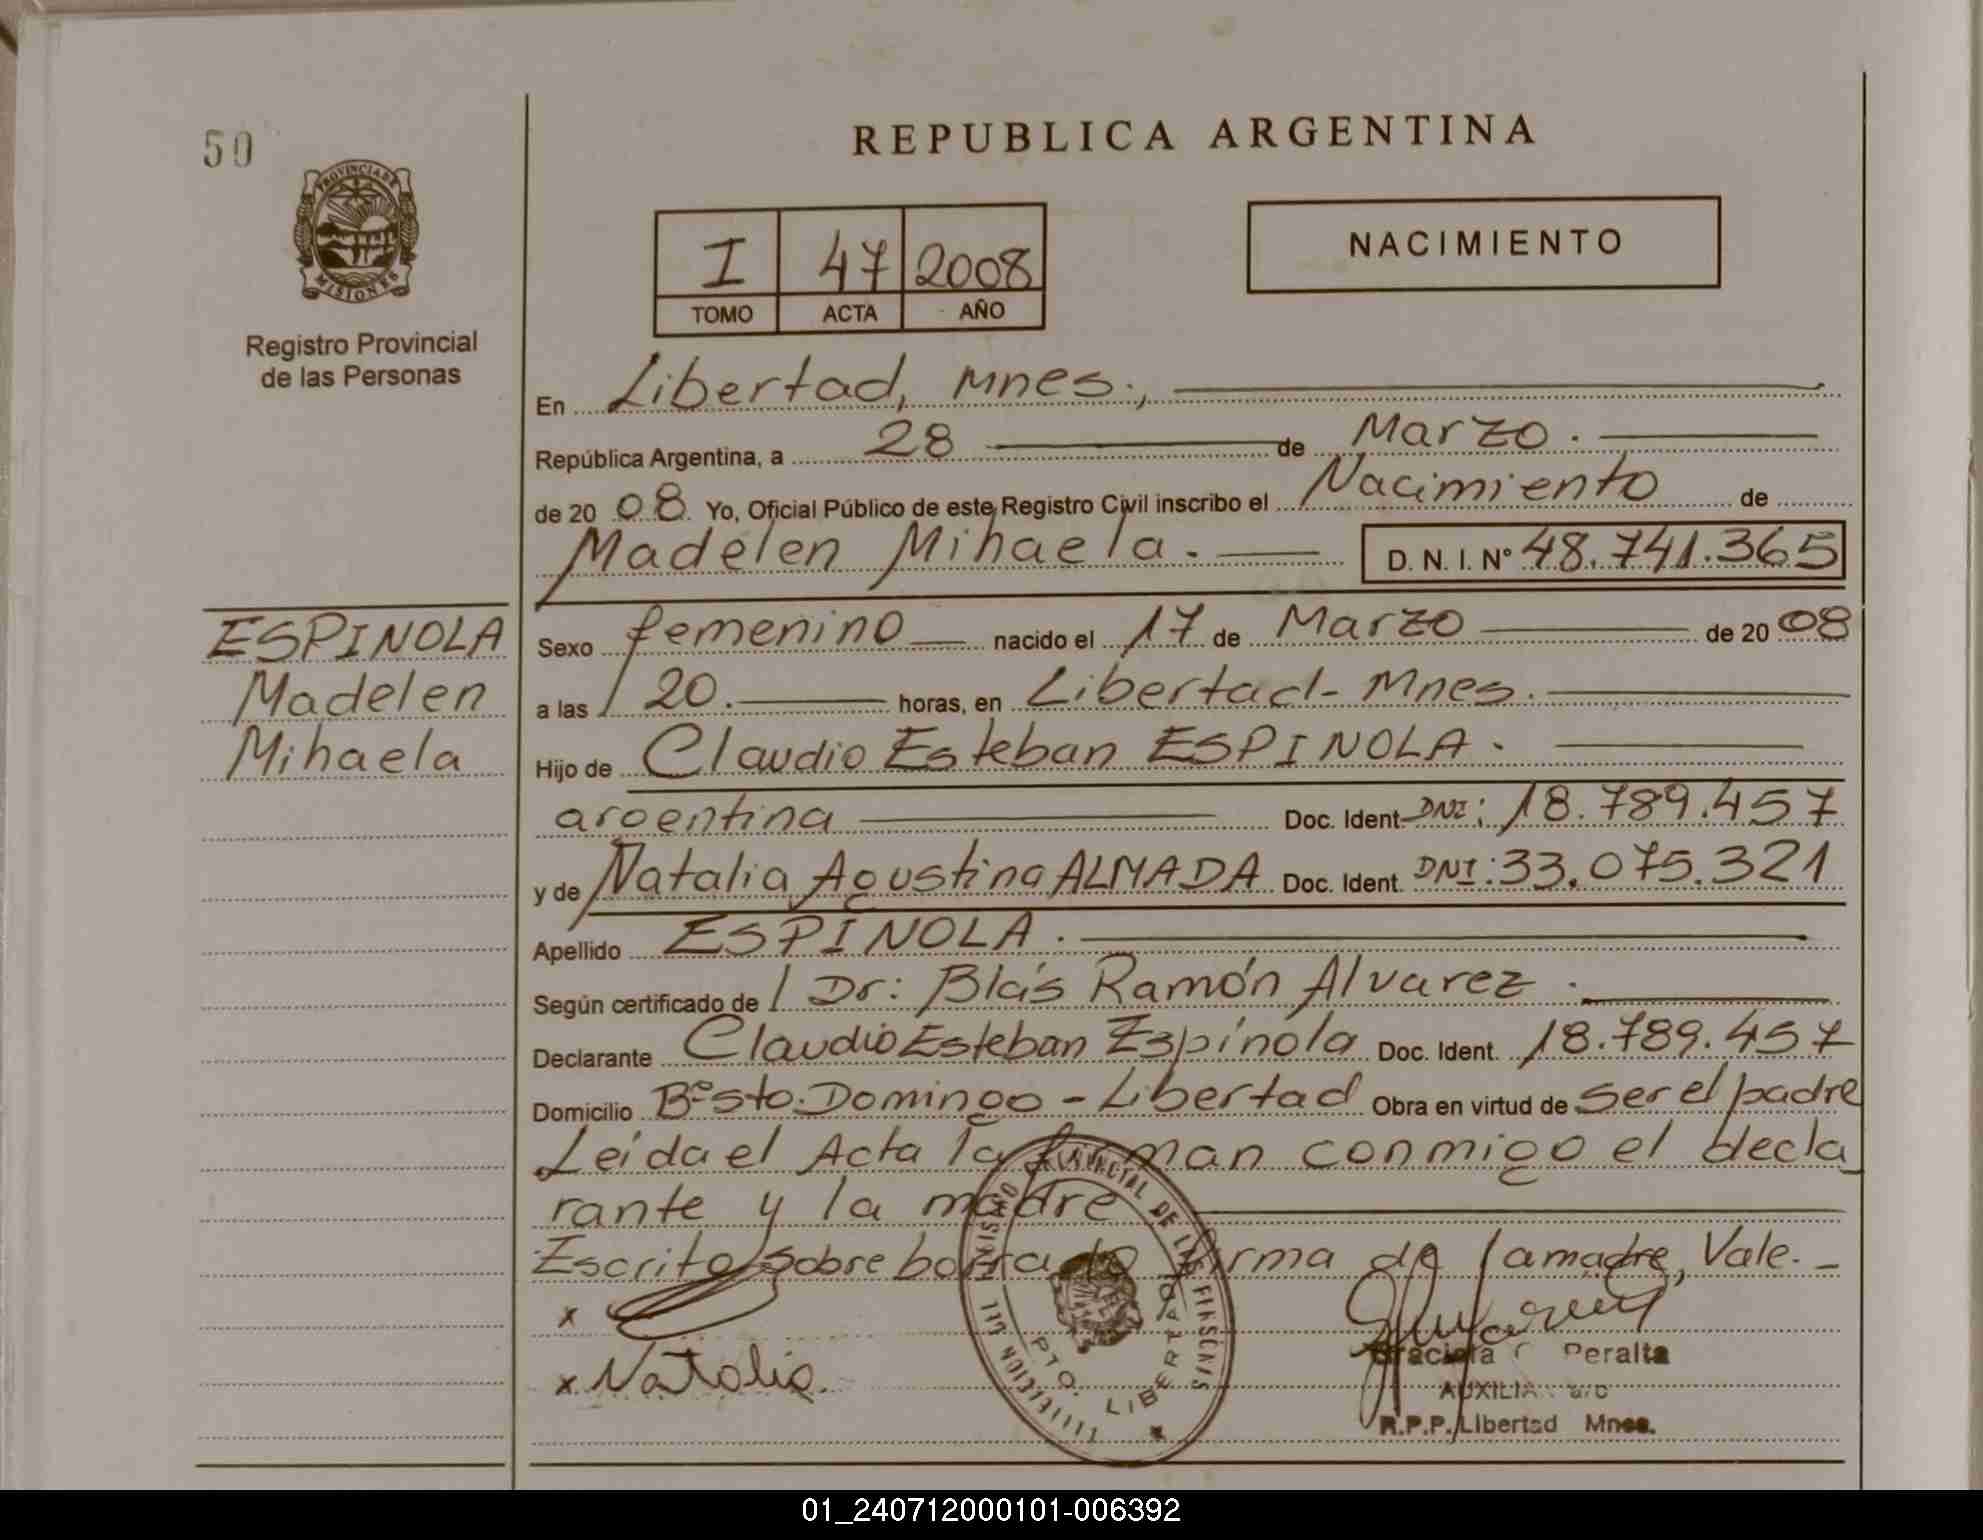 50
REPUBLICA ARGENTINA
PROVINCIA DE
MISIONES
Registro Provincial
de las Personas
I 47 2008
TOMO ACTA AÑO
NACIMIENTO
En Libertad, Mnes.,
República Argentina, a 28 de Marzo.
de 20 08 Yo, Oficial Público de este Registro Civil inscribo el Nacimiento de
Madelen Mihaela. D. N. I. N° 48.741.365
ESPINOLA
Madelen
Mihaela
Sexo femenino nacido el 17 de Marzo de 20 08
a las 20. horas, en Libertad- Mnes.
Hijo de Claudio Esteban ESPINOLA.
argentina Doc. Ident. DNI: 18.789.457
y de Natalia Agustina ALMADA Doc. Ident. DNI: 33.075.321
Apellido ESPINOLA.
Según certificado de Dr: Blás Ramón Alvarez.
Declarante Claudio Esteban Espínola Doc. Ident. 18.789.457
Domicilio B° Sto. Domingo - Libertad Obra en virtud de ser el padre
Leída el Acta la firman conmigo el decla
rante y la madre
Escrito sobre borrado firma de la madre, Vale.-
x
x Natalia.
PROVINCIAL DE LAS
PTO. LIBERTAD
Graciela Peralta
AUXILIAR a/c
R.P.P. Libertad Mnes.
01_240712000101-006392